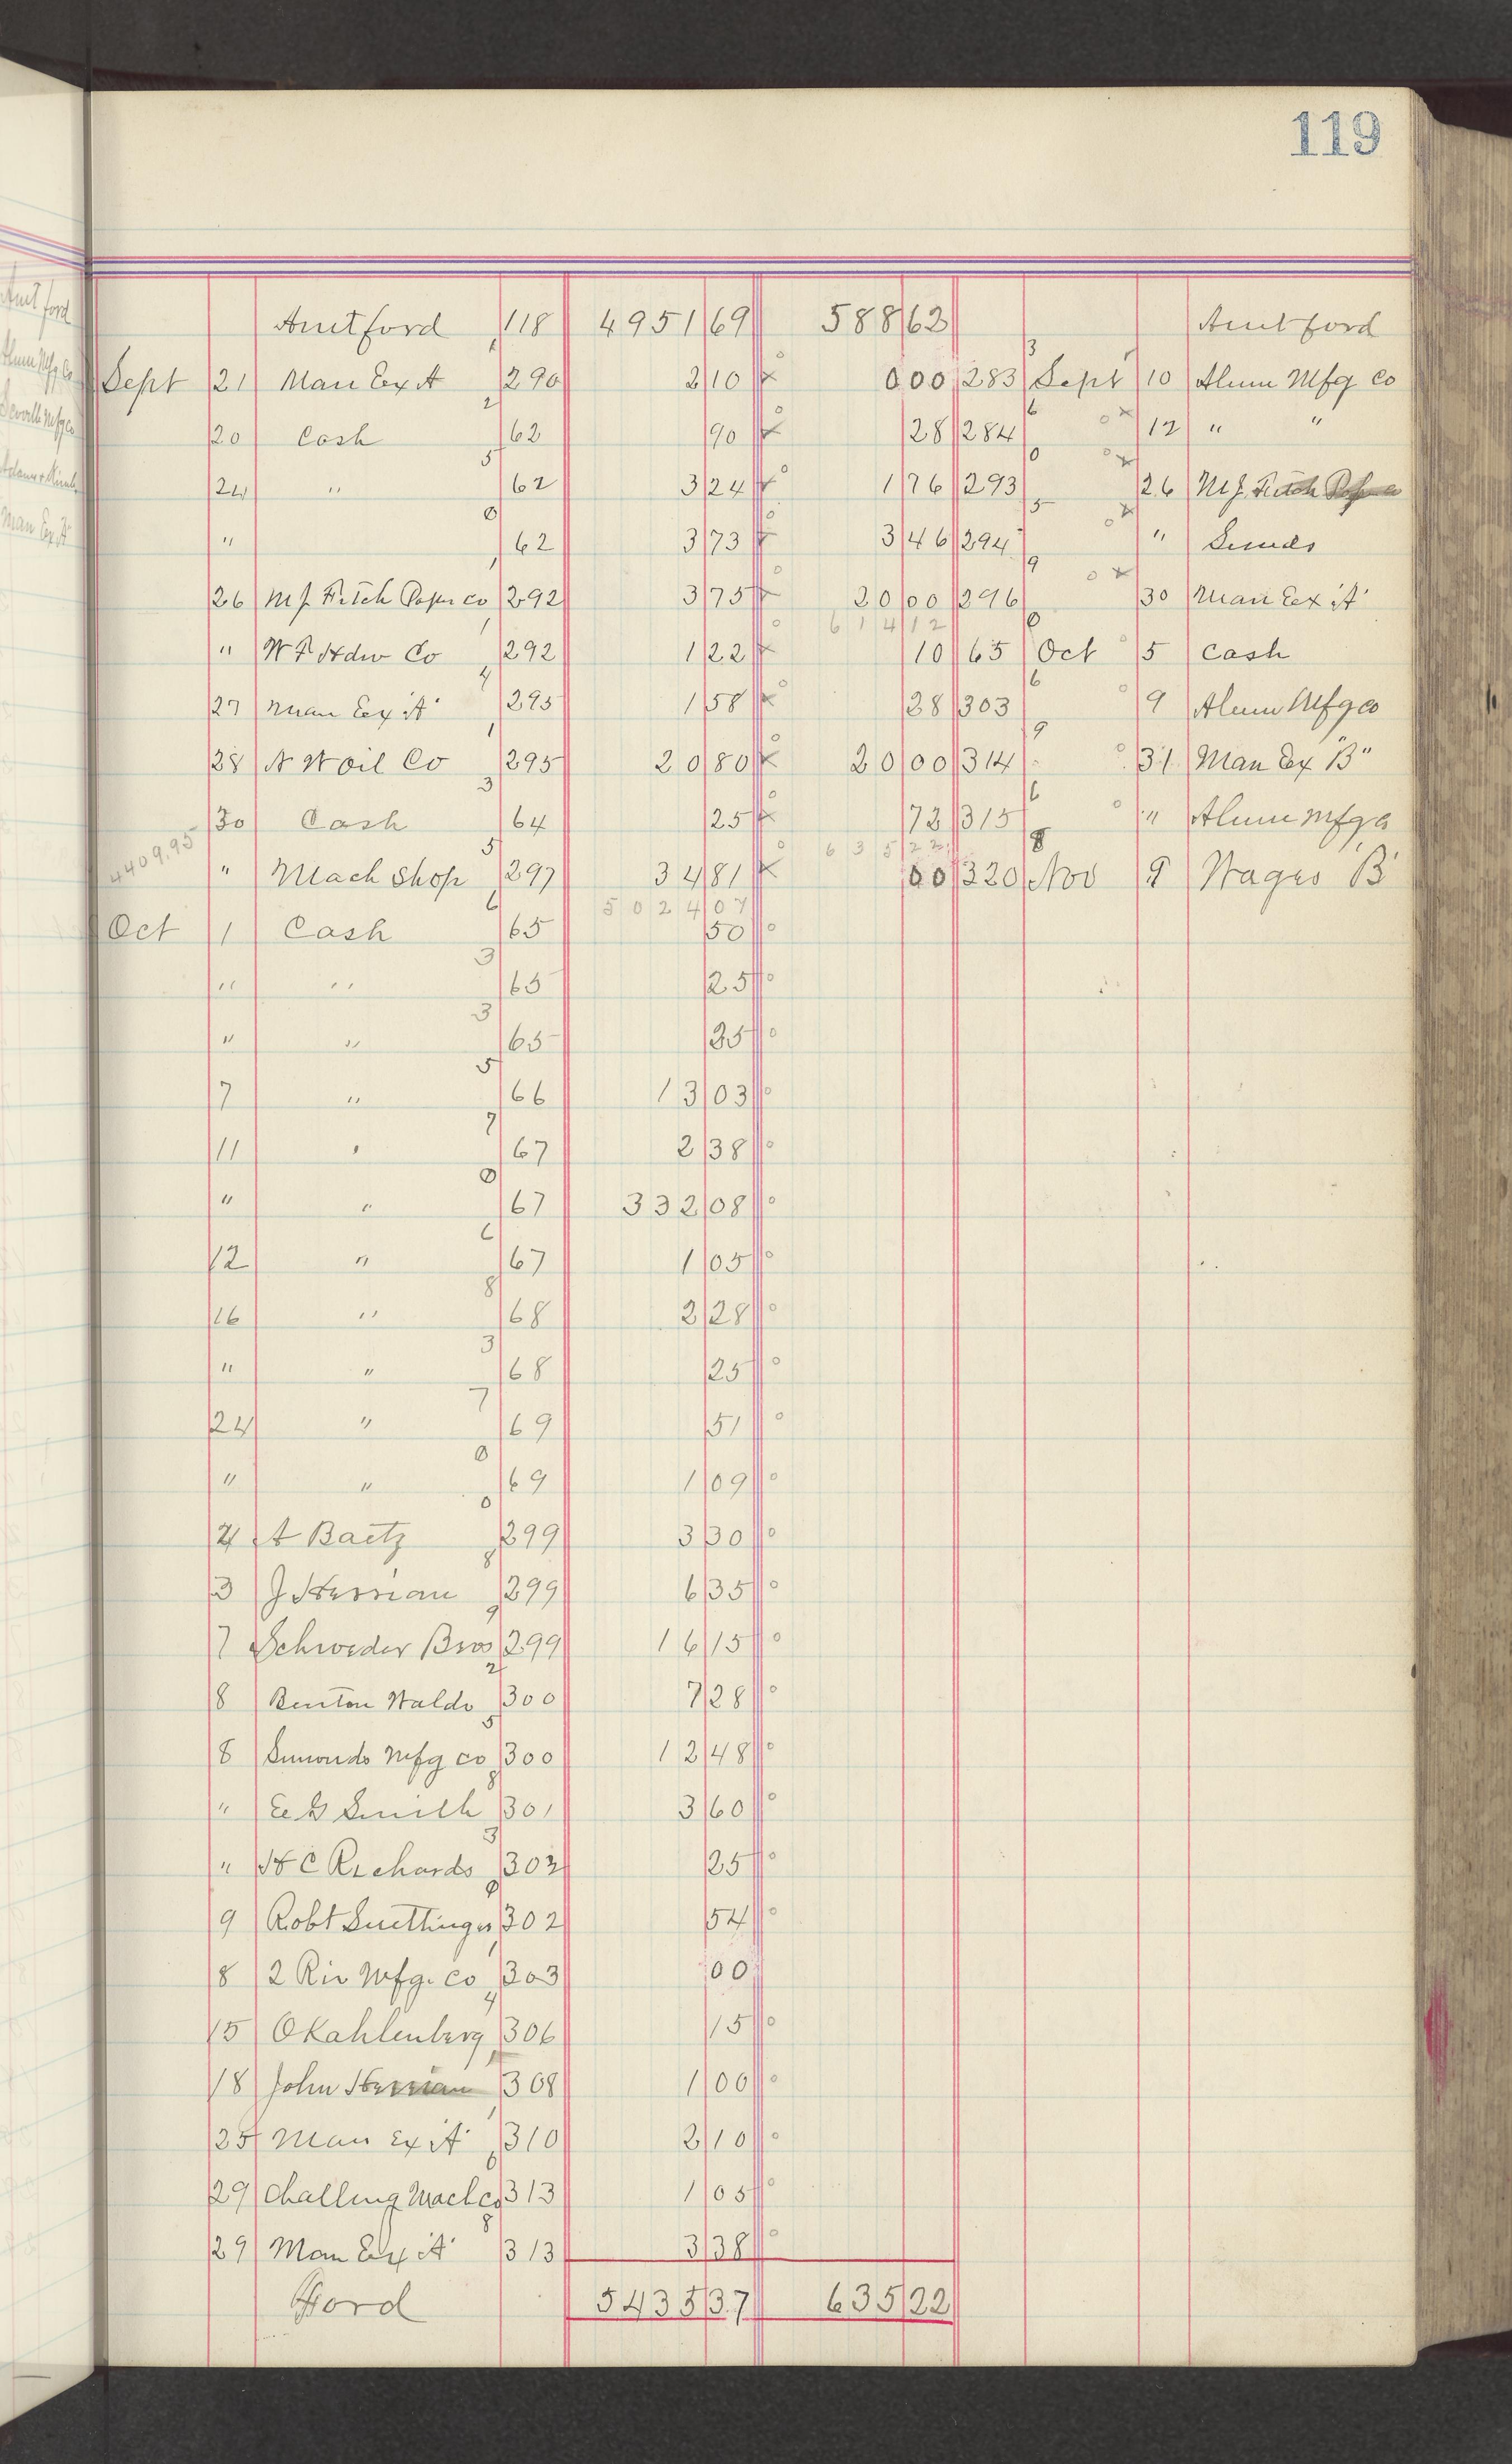 119
Amt ford 118 4951 69 588 62 Amt ford
Sept 21 Man Ex A 290 2 10 0 00 283 Sept 10 Alum Mfg Co
20 Cash 62 90 28 284 12 " "
24 " 62 3 24 1 76 293 26 M J Fitch
" 62 3 73 3 46 294 " Simds
26 M J Fitch Paper co 292 3 75 20 00 296 30 Man Ex "A"
614 12
" W F Hdw Co 292 1 22 10 65 Oct 5 Cash
27 Man Ex "A" 295 1 58 28 303 9 Alum Mfg co
28 N W Oil Co 295 20 80 20 00 314 31 Man Ex "B"
30 Cash 64 25 72 315 " Alum Mfg Co
4409.95 635 22
" Mach Shop 297 34 81 00 320 Nov 9 Wages B
5024 07
Oct 1 Cash 65 50
" " 65 25
" " 65 35
7 " 66 13 03
11 " 67 2 38
" " 67 332 08
12 " 67 1 05
16 " 68 2 28
" " 68 25
24 " 69 51
" " 69 1 09
4 A Baetz 299 3 30
3 J Herrian 299 6 35
7 Schroeder Bros 299 16 15
8 Benton Waldo 300 7 28
8 Simonds Mfg co 300 12 48
" E G Smith 301 3 60
" H C Richards 302 25
9 Robt Suettinger 302 54
8 2 Riv Mfg. Co 303 00
15 O Kahlenberg 306 15
18 John Herrian 308 1 00
25 Man Ex "A" 310 2 10
29 Challeng Mach Co 313 1 05
29 Man Ex "A" 313 3 38
Fford 5435 37 635 22